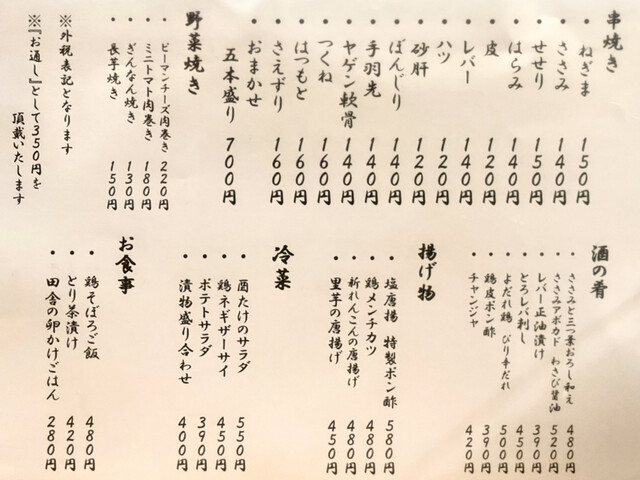 串焼き
・ねぎま 150円
・ささみ 140円
・せせり 150円
・はらみ 140円
・皮 120円
・レバー 140円
・ハツ 120円
・砂肝 120円
・ぼんじり 140円
・手羽先 140円
・ヤゲン軟骨 140円
・つくね 160円
・はつもと 160円
・さえずり 160円
・おまかせ
五本盛り 700円
野菜焼き
・ピーマンチーズ肉巻き 220円
・ミニトマト肉巻き 180円
・ぎんなん焼き 130円
・長芋焼き 150円
※外税表記となります
※『お通し』として350円を
頂戴いたします
酒の肴
・ささみと三つ葉おろし和え 480円
・ささみアボカド わさび醤油 520円
・レバー正油漬け 390円
・とろレバ刺し 450円
・よだれ鶏 ぴり辛だれ 500円
・鶏皮ポン酢 390円
・チャンジャ 420円
揚げ物
・塩唐揚 特製ポン酢 580円
・鶏メンチカツ 480円
・新れんこんの唐揚げ 480円
・里芋の唐揚げ 450円
冷菜
・酉たけのサラダ 550円
・鶏ネギザーサイ 450円
・ポテトサラダ 390円
・漬物盛り合わせ 400円
お食事
・鶏そぼろご飯 480円
・とり茶漬け 420円
・田舎の卵かけごはん 280円